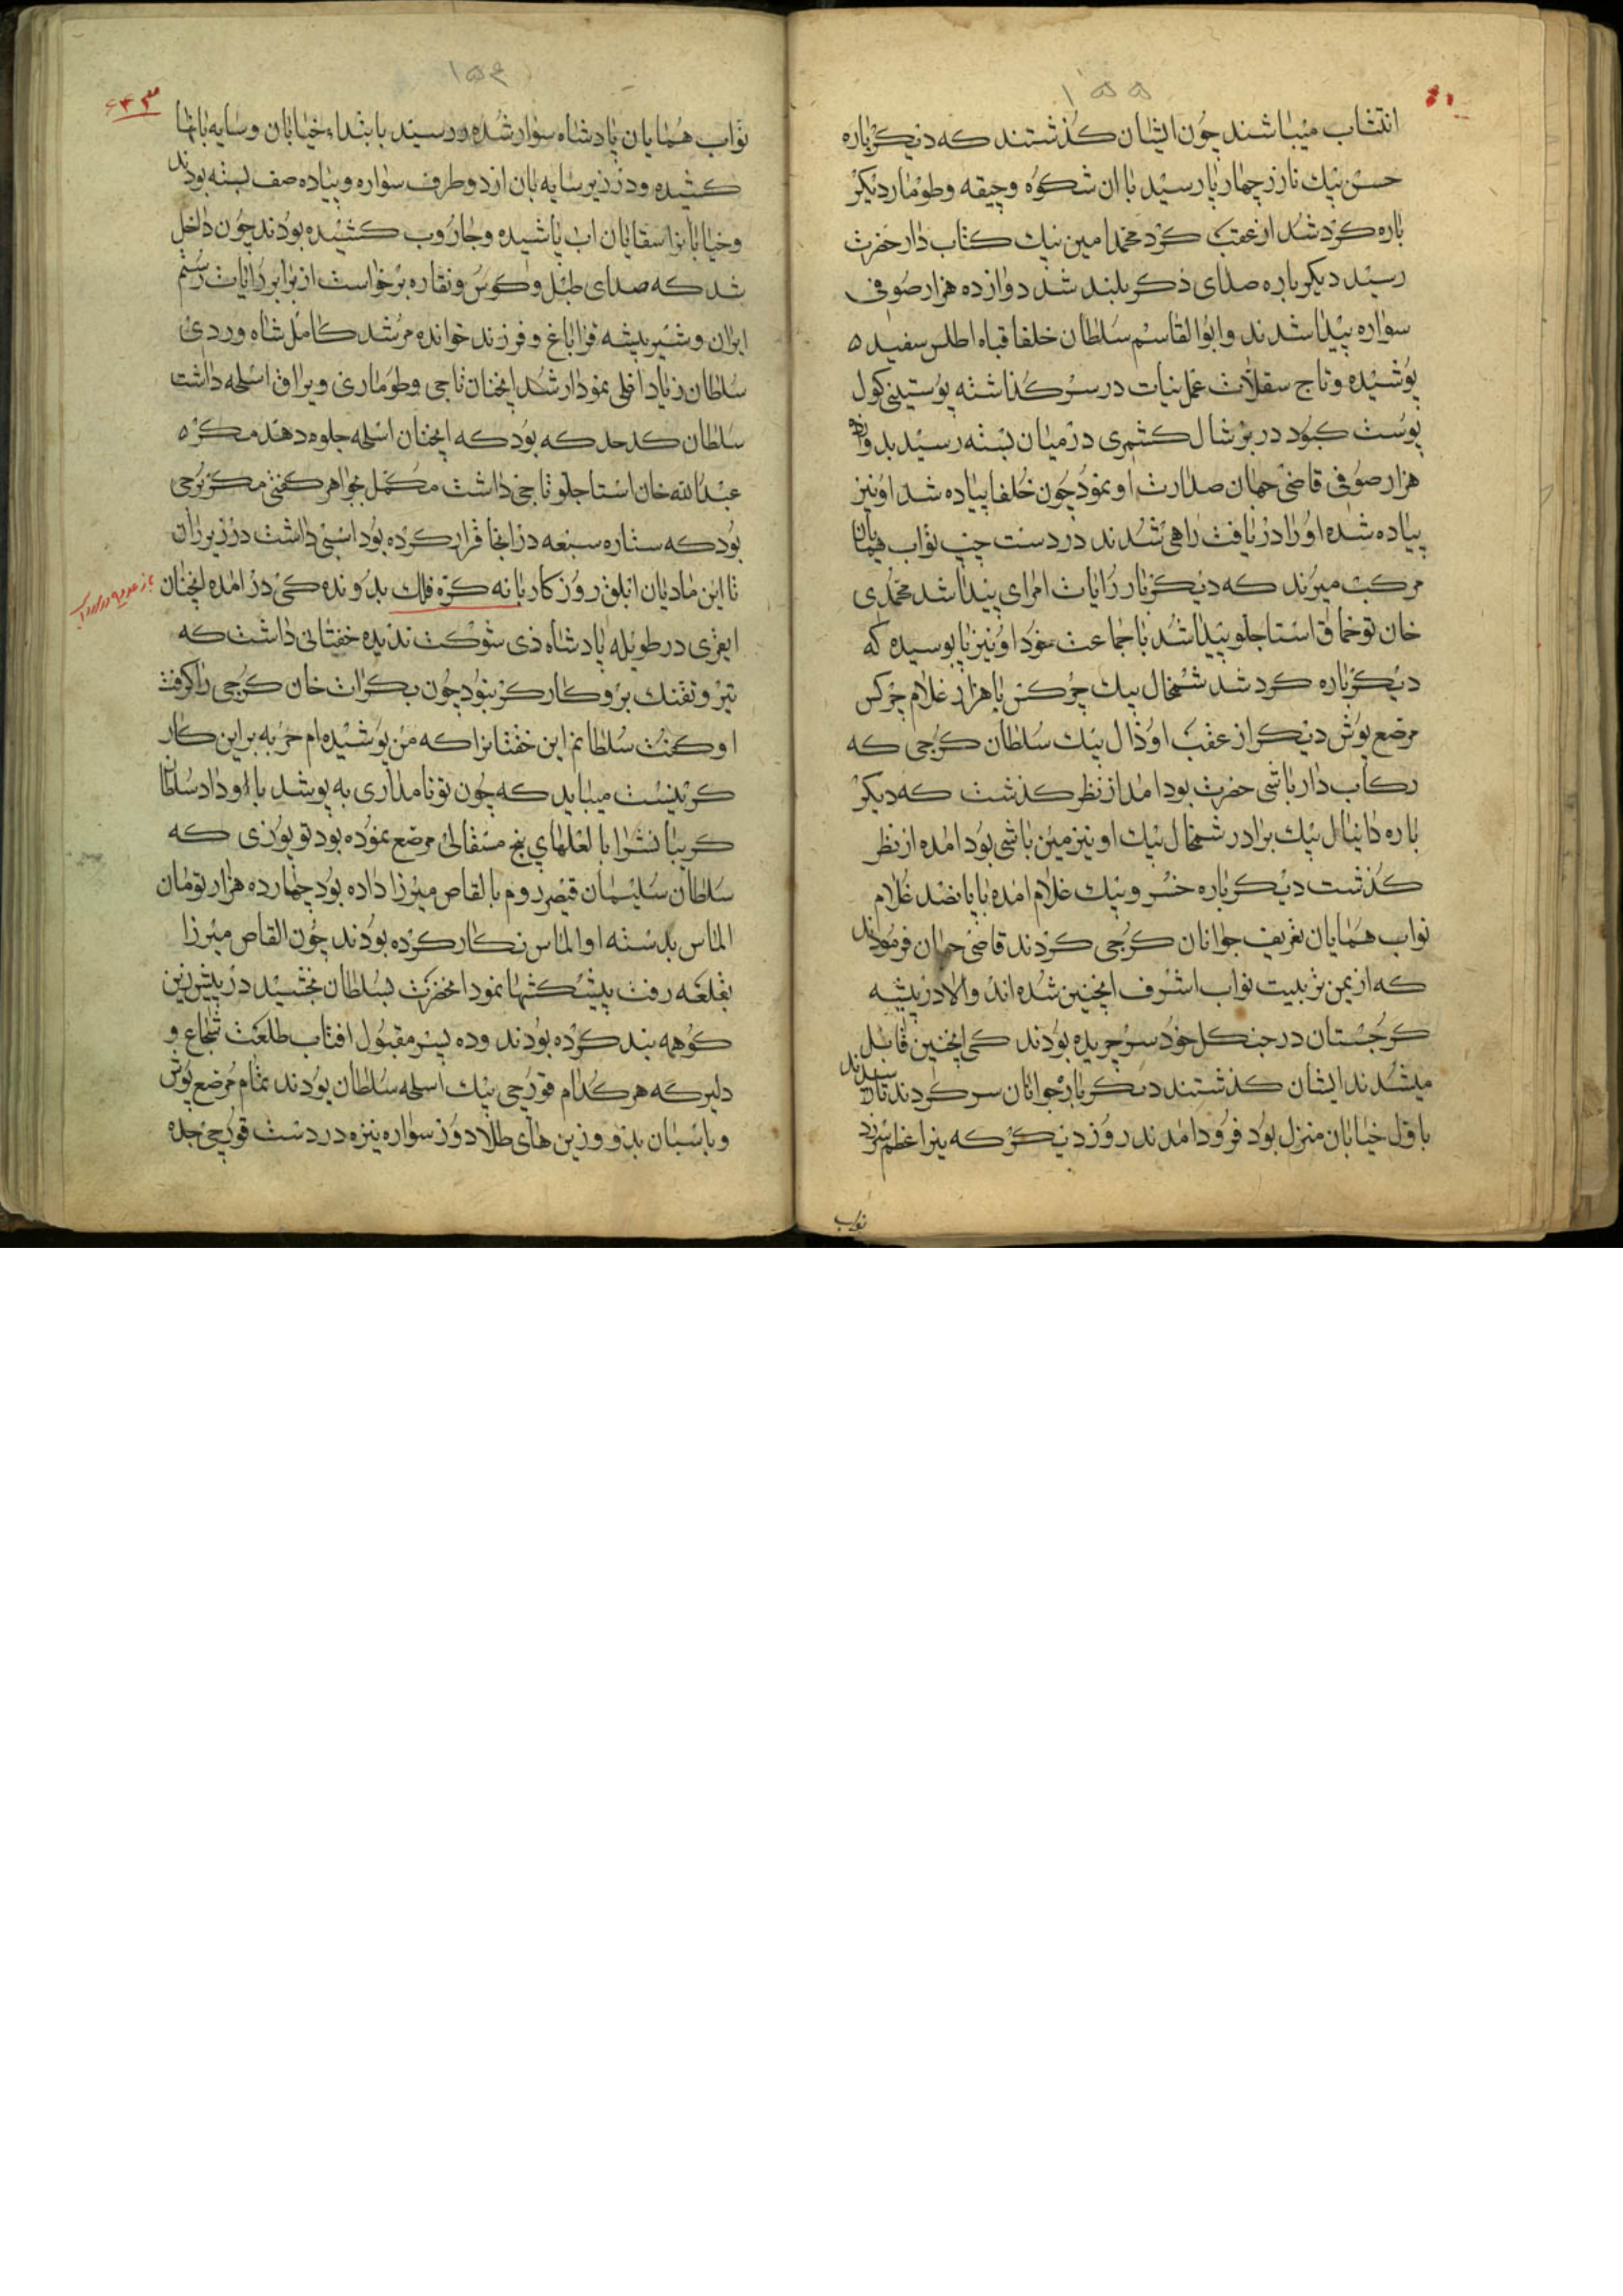 ۱۵۵
انتساب میباشند چون ایشان کذشتند که دیکرباره
حسن بیك نارز چهار پا رسید با ان شکوه و جیقه وطومار دیکر
باره کرد شد از عقب کرد محمد امین بیك کتاب دار حضرت
رسید دیکر باره صدای ذکر بلند شد دوازده هزار صوفی
سواره پیدا شدند وابوالقاسم سلطان خلفا قباه اطلس سفید
پوشیده و تاج سقلات در سر کذاشته پوستینی کول
پوست کبود در بر شال کشمری در میان بسته رسید بدوازده
هزار صوفی قاضی جهان صدارت او نمود چون خلفا پیاده شد او نیز
پیاده شده او را دریافت راهی شدند در دست چپ نواب همایان
مرکب میرند که دیکر بار رایات امرای پیدا شد محمدی
خان توخماق استاجلو پیدا شد با جماعت خود او نیز پا بوسیده که
دیکر باره کرد شد شمخال بیك چرکس با هزار غلام چرکس
مرصع پوش دیکر از عقب او ذال بیك سلطان کرجی که
رکاب دار باشی حضرت بود امد از نظر کذشت که دیکر
باره دانیال بیك برادر شمخال بیك او نیز مین باشی بود امده از نظر
کذشت دیکر باره خسرو بیك غلام امده با پانصد غلام
نواب همایان تعریف جوانان کرجی کردند قاضی جهان فرمودند
که از یمن تربیت نواب اشرف انچنین شده اند والا در بیشه
کرجستان در جنکل خود سر چریده بودند کی انچنین قابل
میشدند ایشان کذشتند دیکر باره جوانان سر کردند تا رسیدند
باول خیابان منزل بود فرود امدند روز دیکر که نیر اعظم سر زد
نواب
۱۵۶
۶۴۳
نواب همایان پادشاه سوار شده رسید بابتداء خیابان و سایه بانها
کشیده و در زیر سایه بان از دو طرف سواره و پیاده صف بسته بودند
و خیابانرا سقایان اب پاشیده و جاروب کشیده بودند چون داخل
شد که صدای طبل و کوس و نقاره برخواست از برابر رایات رستم
ایران و شیر بیشه قراباغ و فرزند خوانده مرشد کامل شاه وردی
سلطان زیاد اغلی نمودار شد انچنان تاجی وطوماری و یراق اسلحه داشت
سلطان کدحد که بود که انچنان اسلحه جلوه دهد مکر
عبدالله خان استاجلو تاجی داشت مکمل بجواهر کفتی مکر برجی
بود که ستاره سبعه در انجا قرار کرده بود اسبی داشت در زیر ران
تا این مادیان ابلق روز کار بانه کره فلك بدونده کی در امده انچنان
ایغری در طویله پادشاه ذی شوکت ندیده خفتانی داشت که
تیر و تفنك برو کار کر نبود چون بکرات خان کرجی را کرفت
او کفت سلطانم این خفتانرا که من پوشیده ام حربه بر این کار
کر نیست میباید که چون تو نامداری به پوشد با او داد سلطان
کریبانشرا با لعلهای پنج مسقالی مرصع نموده بود توپوزی که
سلطان سلیمان قیصر روم بالقاص میرزا داده بود چهارده هزار تومان
الماس بدسته او الماس نکار کرده بودند چون القاص میرزا
بقلعه رفت پیشکشها نمود انحضرت بسلطان بخشید در پیش زین
کوهه بند کرده بودند و ده پسر مقبول افتاب طلعت شجاع و
دلیر که هر کدام قورچی یك اسلحه سلطان بودند تمام مرصع پوش
و با سبان بدو و زین های طلا دوز سواره نیزه در دست قورچی جده